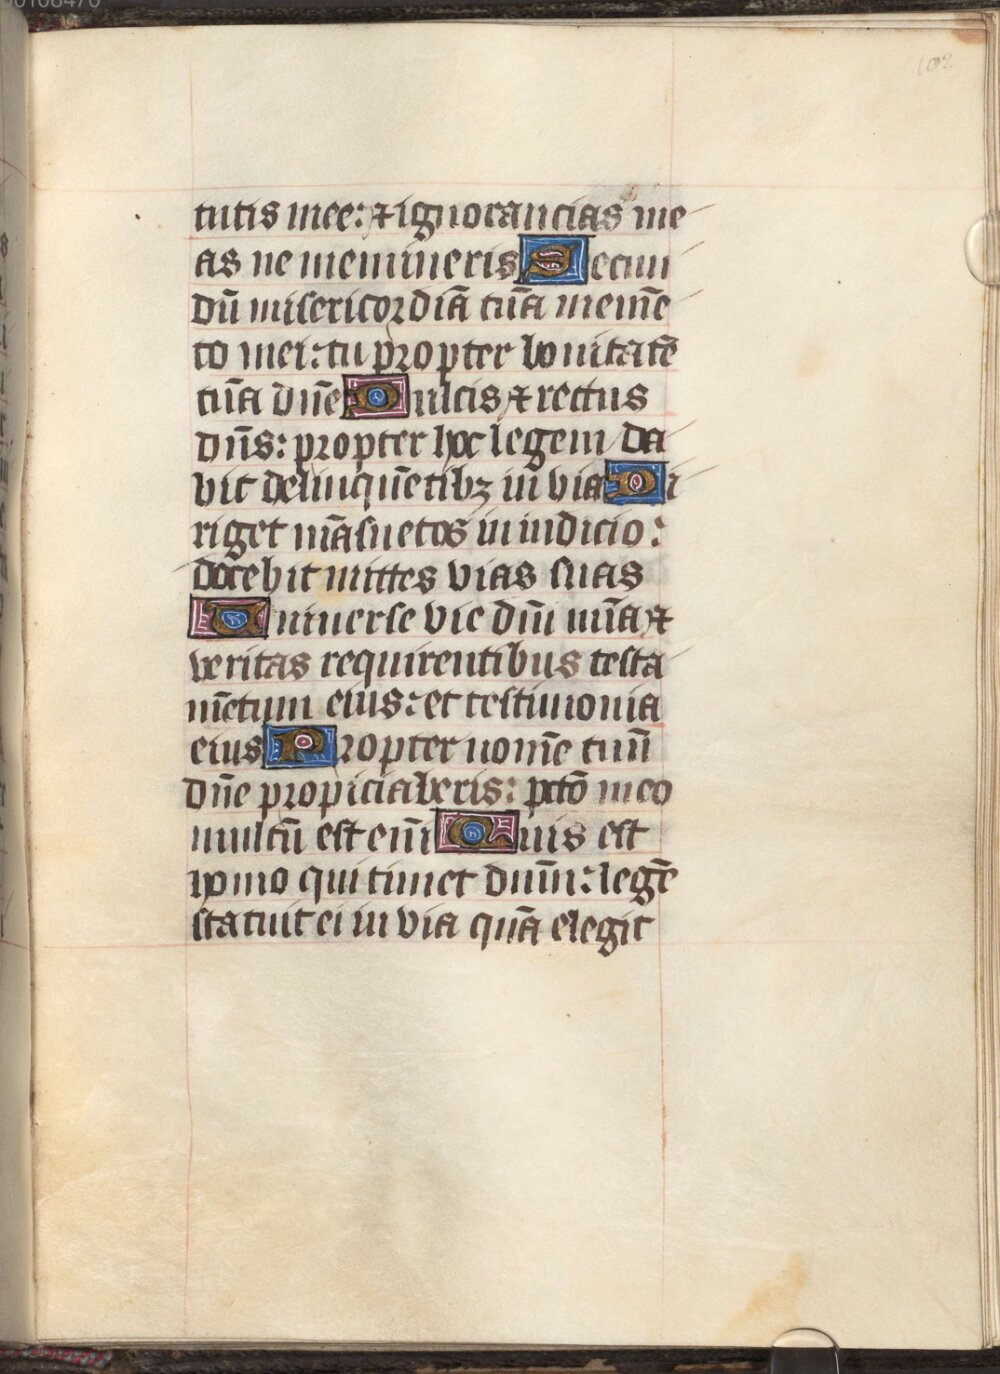 102
tutis mee: ⁊ ignorancias me
as ne memineris Secun
dū misericordiā tuā memē
to mei: tu propter bonitatē
tuā dn̄e Dulcis ⁊ rectus
dn̄s: propter hoc legem da
bit delinquētibꝫ in via Di
riget māsuetos in iudicio:
docebit mittes vias suas
Uniuerse vie dn̄i mīa ⁊
veritas requirentibus testa
mētum eius: et testimonia
eius Propter nomē tuū
dn̄e propiciaberis: pctō meo
multū est enī Quis est
homo qui timet dnūm: legē
statuit ei in via quā elegit